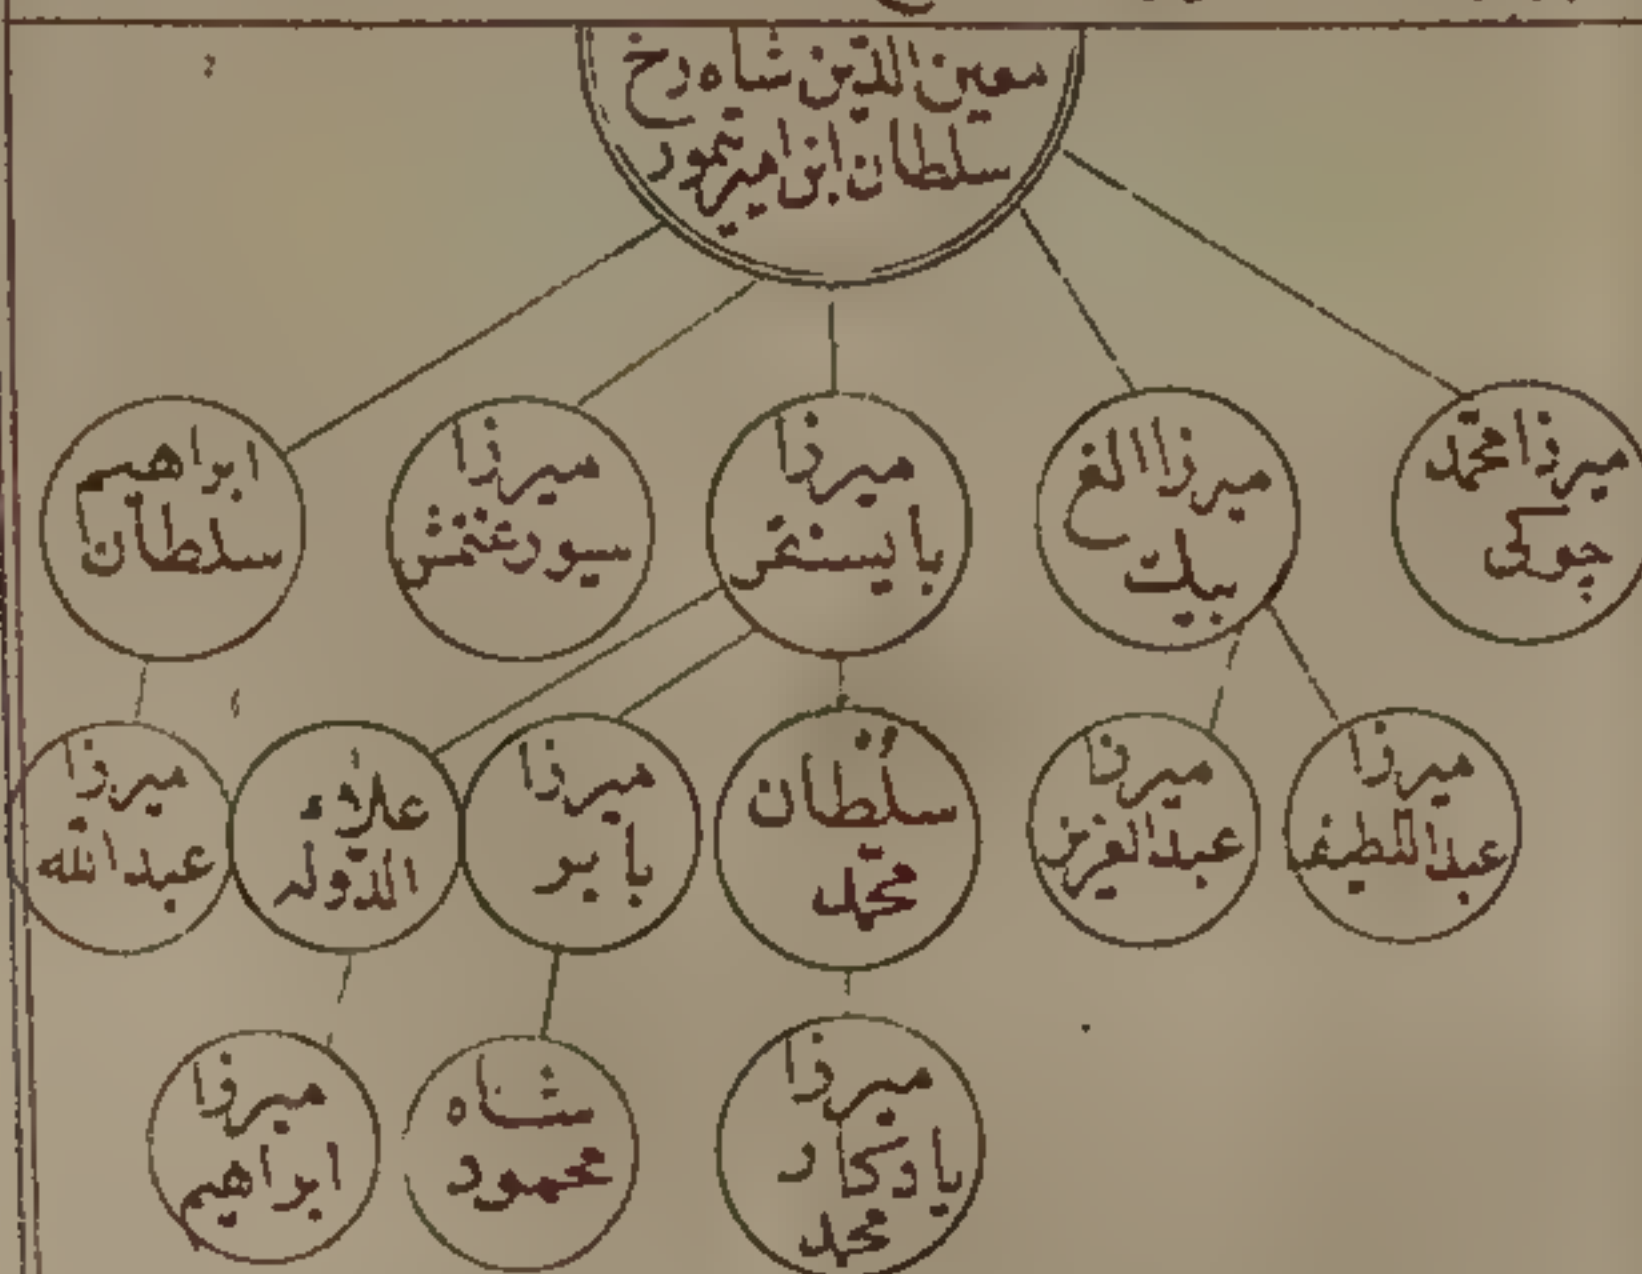 معين الدّين شاه رخ
سلطان ابن امير تيمور
ميرزا محمّد
چوكى
ميرزا الغ
بيك
ميرزا
بايسنغر
ميرزا
سيورغتمش
ابراهيم
سلطان
ميرزا
عبداللطيف
ميرزا
عبدالعزيز
سلطان
محمّد
ميرزا
بابر
علاء
الدّوله
ميرزا
عبدالله
ميرزا
يادكار
محمد
شاه
محمود
ميرزا
ابراهيم